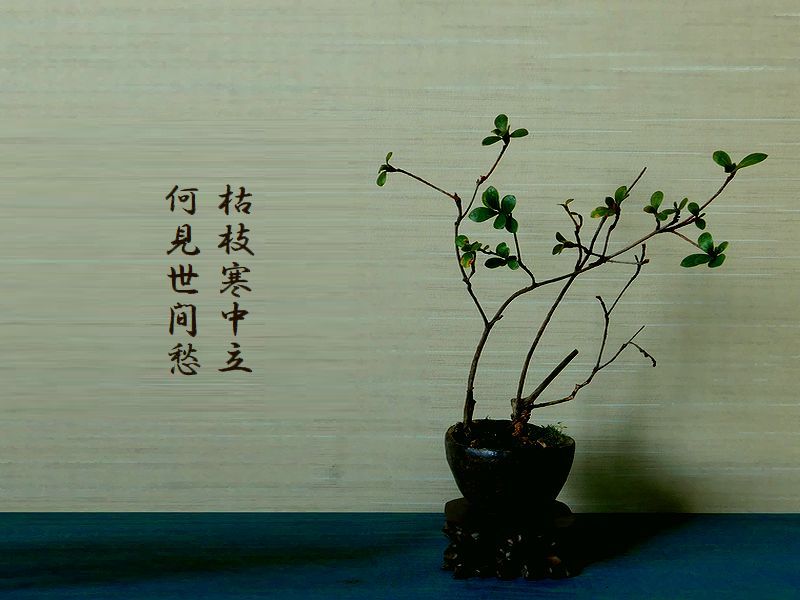 枯枝寒中立
何見世间愁